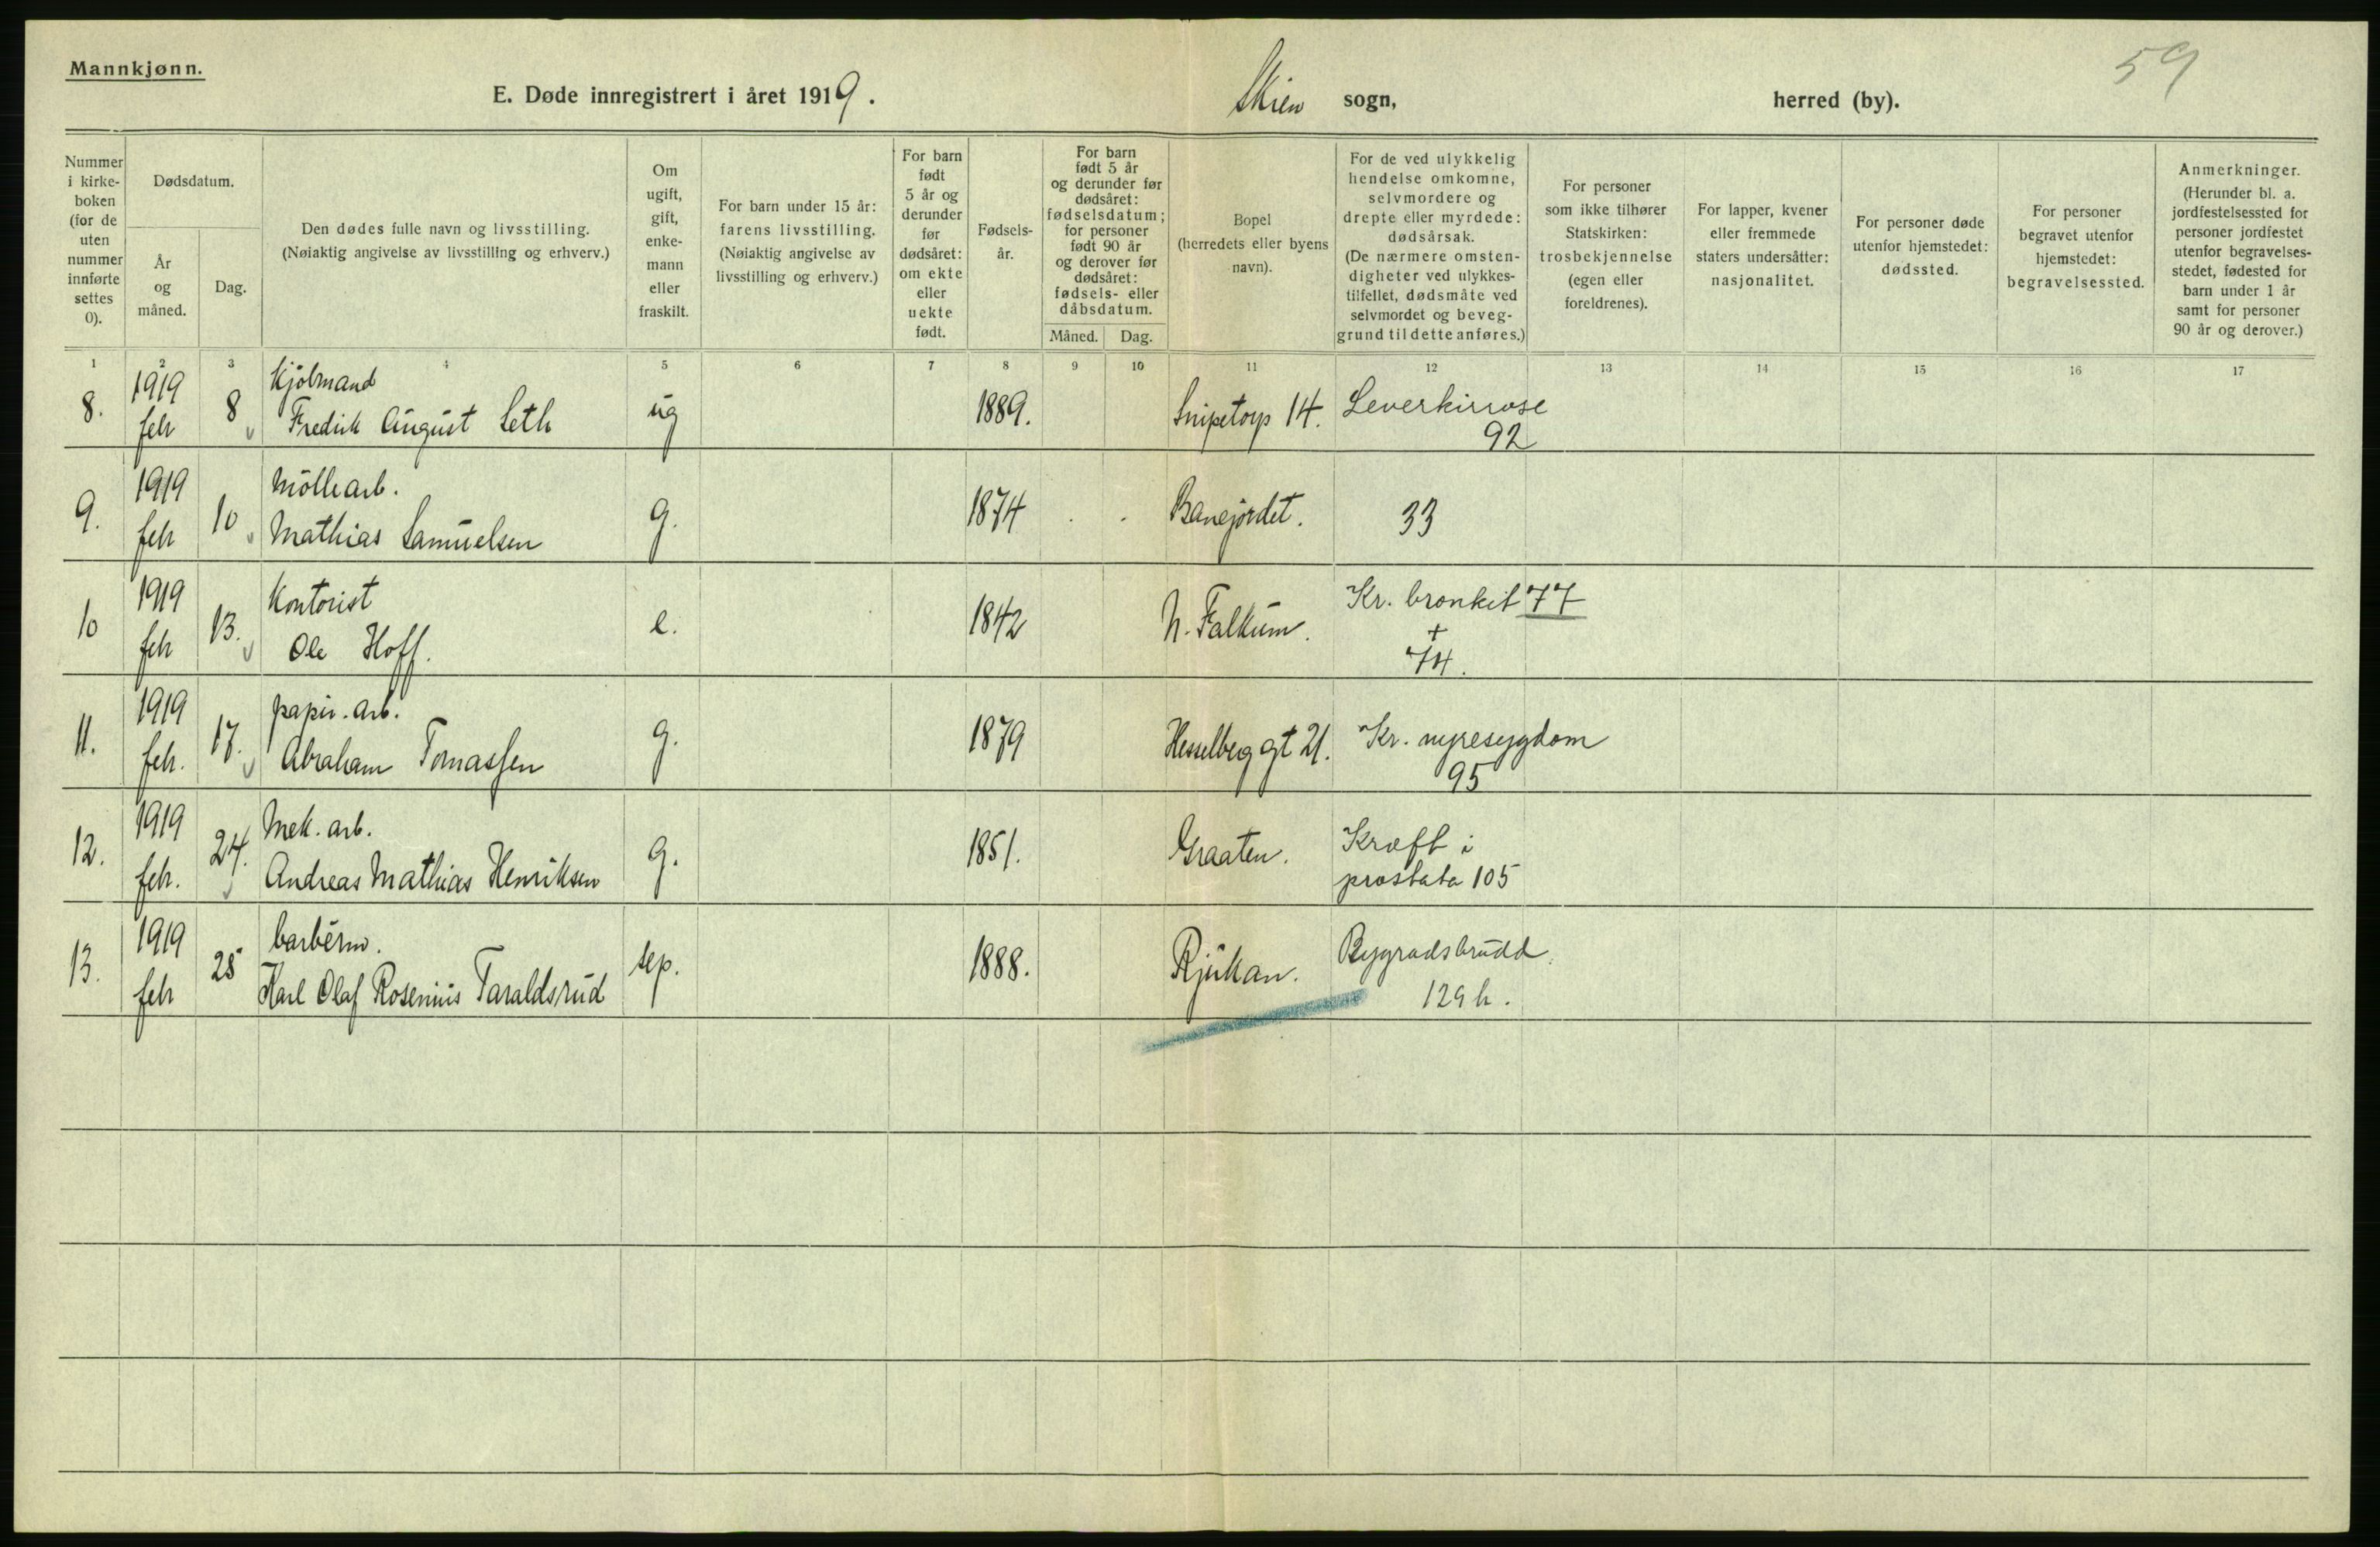 Mannkjønn.
59
E. Døde innregistrert i året 1919. Skien sogn, herred (by).
Nummer
i kirke-
boken
(for de
uten
nummer
innførte
settes
0).
Dødsdatum.
År
og
måned.
Dag.
Den dødes fulle navn og livsstilling.
(Nøiaktig angivelse av livsstilling og erhverv.)
Om
ugift,
gift,
enke-
mann
eller
fraskilt.
For barn under 15 år:
farens livsstilling.
(Nøiaktig angivelse av
livsstilling og erhverv.)
For barn
født
5 år og
derunder
før
dødsåret:
om ekte
eller
uekte
født.
Fødsels-
år.
For barn
født 5 år
og derunder før
dødsåret:
fødselsdatum;
for personer
født 90 år
og derover før
dødsåret:
fødsels- eller
dåbsdatum.
Måned. Dag.
Bopel
(herredets eller byens
navn).
For de ved ulykkelig
hendelse omkomne,
selvmordere og
drepte eller myrdede:
dødsårsak.
(De nærmere omsten-
digheter ved ulykkes-
tilfellet, dødsmåte ved
selvmordet og beveg-
grund til dette anføres.)
For personer
som ikke tilhører
Statskirken:
trosbekjennelse
(egen eller
foreldrenes).
For lapper, kvener
eller fremmede
staters undersåtter:
nasjonalitet.
For personer døde
utenfor hjemstedet:
dødssted.
For personer
begravet utenfor
hjemstedet:
begravelsessted.
Anmerkninger.
(Herunder bl. a.
jordfestelsessted for
personer jordfestet
utenfor begravelses-
stedet, fødested for
barn under 1 år
samt for personer
90 år og derover.)
1 2 3 4 5 6 7 8 9 10 11 12 13 14 15 16 17
1919 Kjölmand
8. feb 8 Fredrik August Seth ug 1889. Snipetorp 14. Leverkirrose
92
1919 Möllearb.
9. feb 10 Mathias Samuelsen g. 1874 Banejordet. 33
1919 Kontorist Kr. bronkit 77
10 feb 13. Ole Hoff. e. 1842 N. Falkum. +
74.
1919 papir. arb.
11. feb. 17. Abraham Tomassen g. 1879 Hesselberg gt 21. Kr. nyresygdom
95
1919 Mek. arb. Kræft i
12. feb. 24. Andreas Mathias Henriksen g. 1851. Graaten. prostata 105
1919 barbérm. Rygradsbrudd.
13. feb 25 Karl Olaf Rosenius Taraldsrud sep. 1888. Rjukan. 129 h.